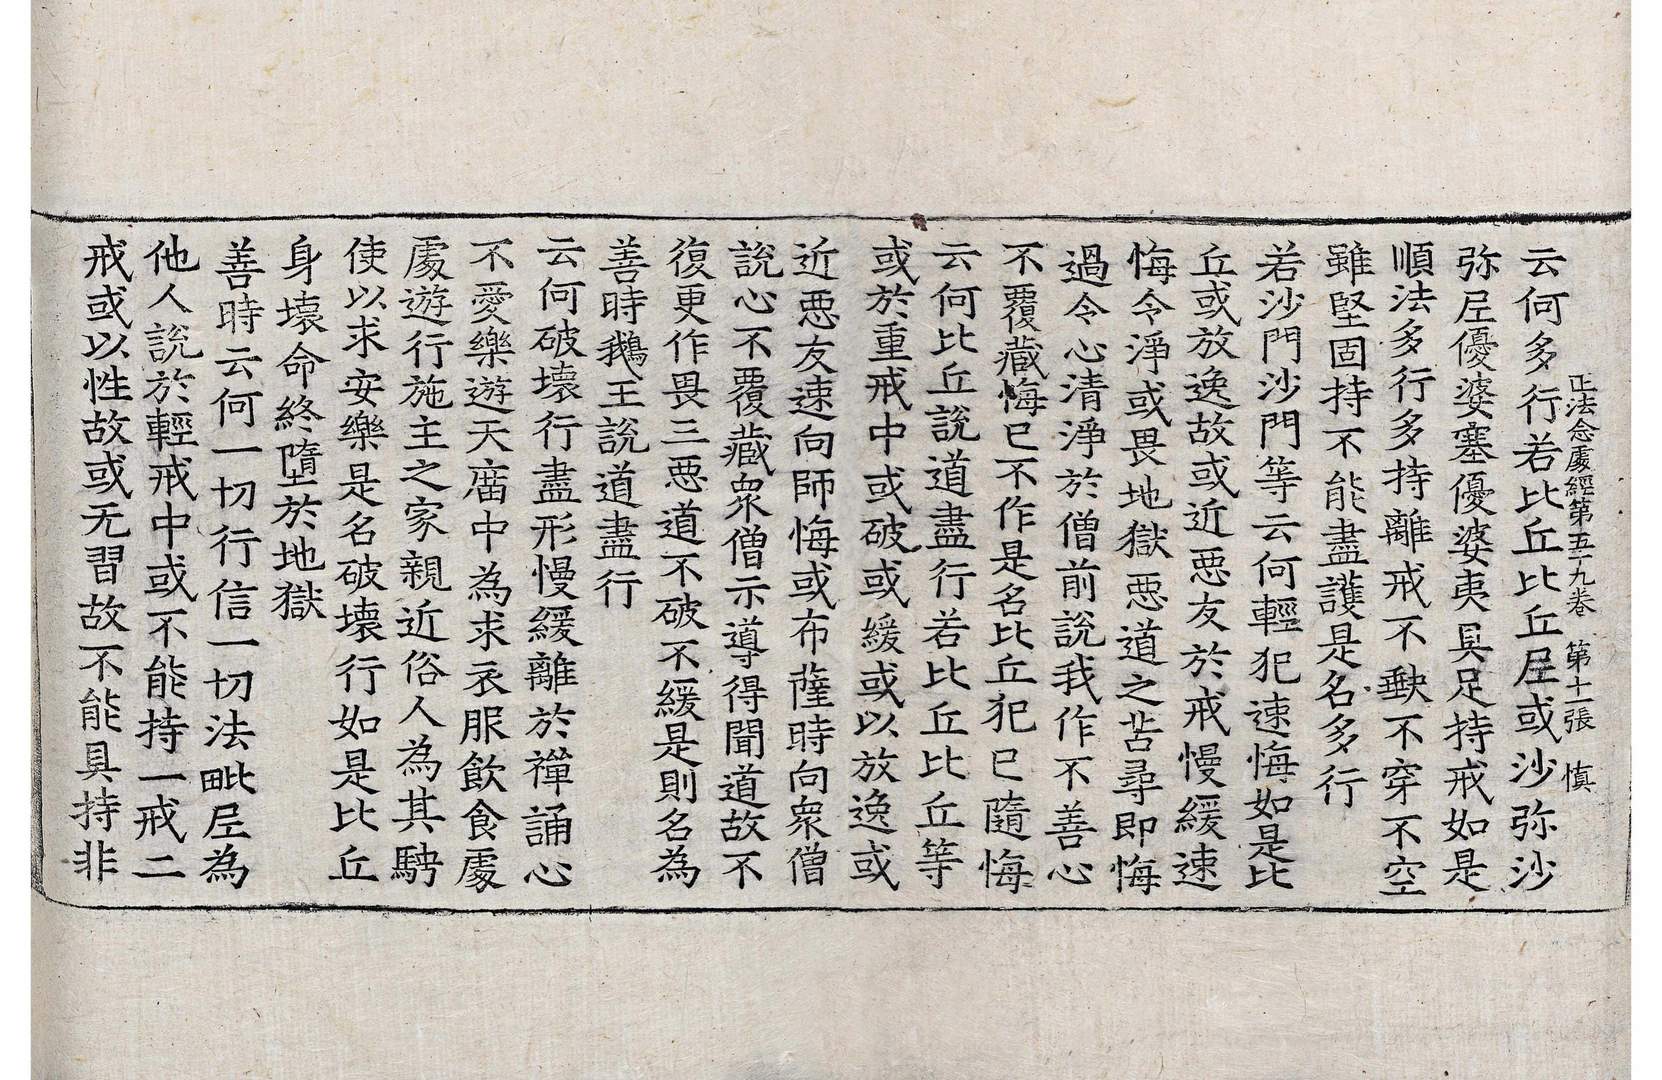 正法念處經第五十九卷　第十一張　慎
云何多行若比丘比丘尼或沙弥沙
弥尼優婆塞優婆夷具足持戒如是
順法多行多持離戒不缺不穿不空
雖堅固持不能盡護是名多行
若沙門沙門等云何輕犯速悔如是比
丘或放逸故或近惡友於戒慢緩速
悔令淨或畏地獄惡道之苦尋即悔
過令心清淨於僧前說我作不善心
不覆藏悔已不作是名比丘犯已隨悔
云何比丘說道盡行若比丘比丘等
或於重戒中或破或緩或以放逸或
近惡友速向師悔或布薩時向衆僧
說心不覆藏衆僧示導得聞道故不
復更作畏三惡道不破不緩是則名為
善時鵝王說道盡行
云何破壞行盡形慢緩離於禪誦心
不愛樂遊天廟中為求衣服飲食處
處遊行施主之家親近俗人為其騁
使以求安樂是名破壞行如是比丘
身壞命終墮於地獄
善時云何一切行信一切法毗尼為
他人說於輕戒中或不能持一戒二
戒或以性故或无習故不能具持非